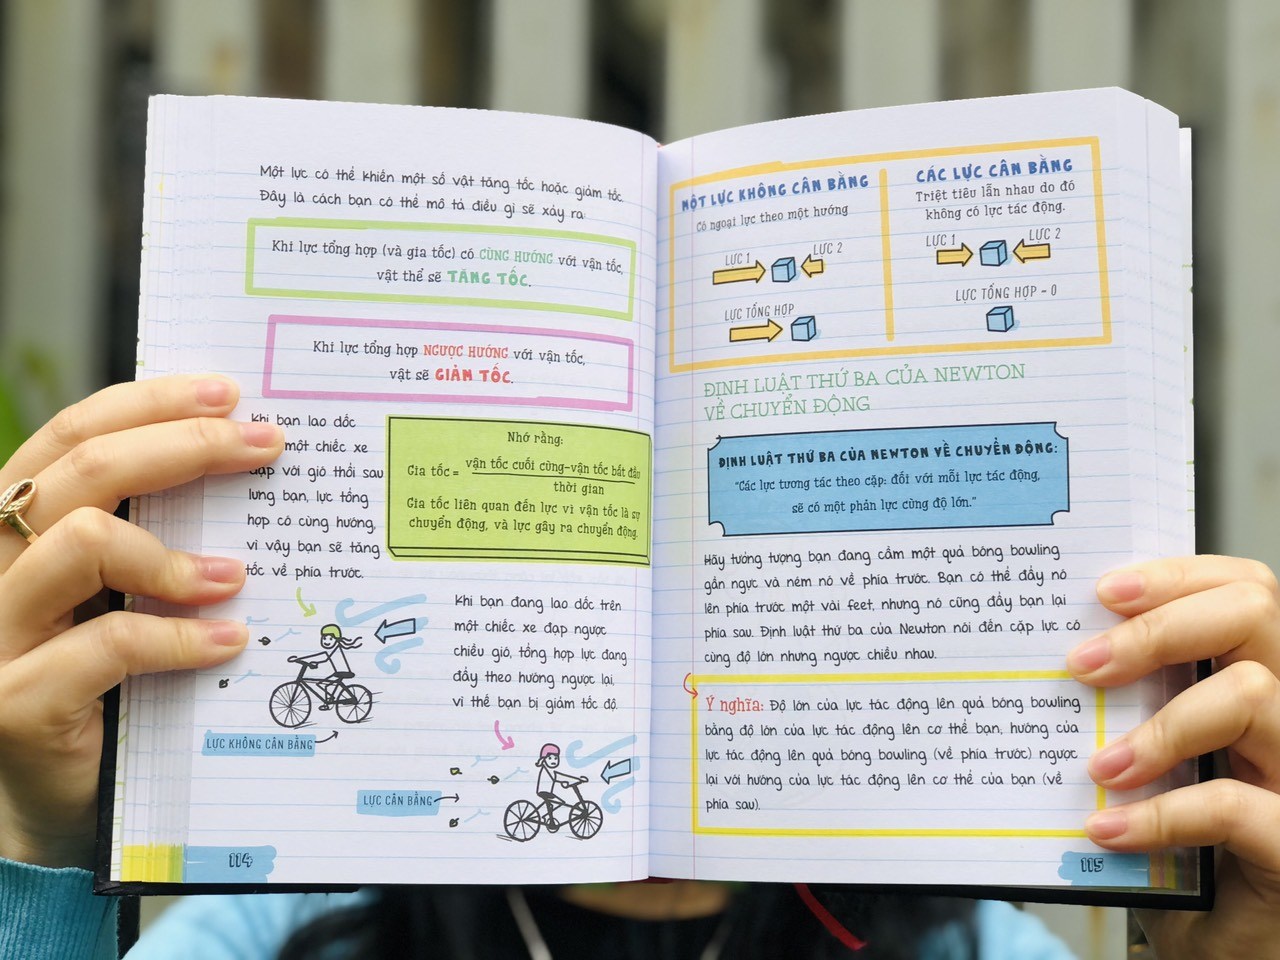 Một lực có thể khiến một số vật tăng tốc hoặc giảm tốc.
Đây là cách bạn có thể mô tả điều gì sẽ xảy ra:
Khi lực tổng hợp (và gia tốc) có CÙNG HƯỚNG với vận tốc,
vật thể sẽ TĂNG TỐC.
Khi lực tổng hợp NGƯỢC HƯỚNG với vận tốc,
vật sẽ GIẢM TỐC.
Khi bạn lao dốc
một chiếc xe
đạp với gió thổi sau
lưng bạn, lực tổng
hợp có cùng hướng,
vì vậy bạn sẽ tăng
tốc về phía trước.
Nhớ rằng:
Gia tốc = vận tốc cuối cùng-vận tốc bắt đầu
thời gian
Gia tốc liên quan đến lực vì vận tốc là sự
chuyển động, và lực gây ra chuyển động.
LỰC KHÔNG CÂN BẰNG
Khi bạn đang lao dốc trên
một chiếc xe đạp ngược
chiều gió, tổng hợp lực đang
đẩy theo hướng ngược lại,
vì thế bạn bị giảm tốc độ.
LỰC CÂN BẰNG
114
MỘT LỰC KHÔNG CÂN BẰNG
Có ngoại lực theo một hướng
LỰC 1
LỰC 2
LỰC TỔNG HỢP
CÁC LỰC CÂN BẰNG
Triệt tiêu lẫn nhau do đó
không có lực tác động.
LỰC 1
LỰC 2
LỰC TỔNG HỢP = 0
ĐỊNH LUẬT THỨ BA CỦA NEWTON
VỀ CHUYỂN ĐỘNG
ĐỊNH LUẬT THỨ BA CỦA NEWTON VỀ CHUYỂN ĐỘNG:
"Các lực tương tác theo cặp: đối với mỗi lực tác động,
sẽ có một phản lực cùng độ lớn."
Hãy tưởng tượng bạn đang cầm một quả bóng bowling
gần ngực và ném nó về phía trước. Bạn có thể đẩy nó
lên phía trước một vài feet, nhưng nó cũng đẩy bạn lại
phía sau. Định luật thứ ba của Newton nói đến cặp lực có
cùng độ lớn nhưng ngược chiều nhau.
Ý nghĩa: Độ lớn của lực tác động lên quả bóng bowling
bằng độ lớn của lực tác động lên cơ thể bạn, hướng của
lực tác động lên quả bóng bowling (về phía trước) ngược
lại với hướng của lực tác động lên cơ thể của bạn (về
phía sau).
115